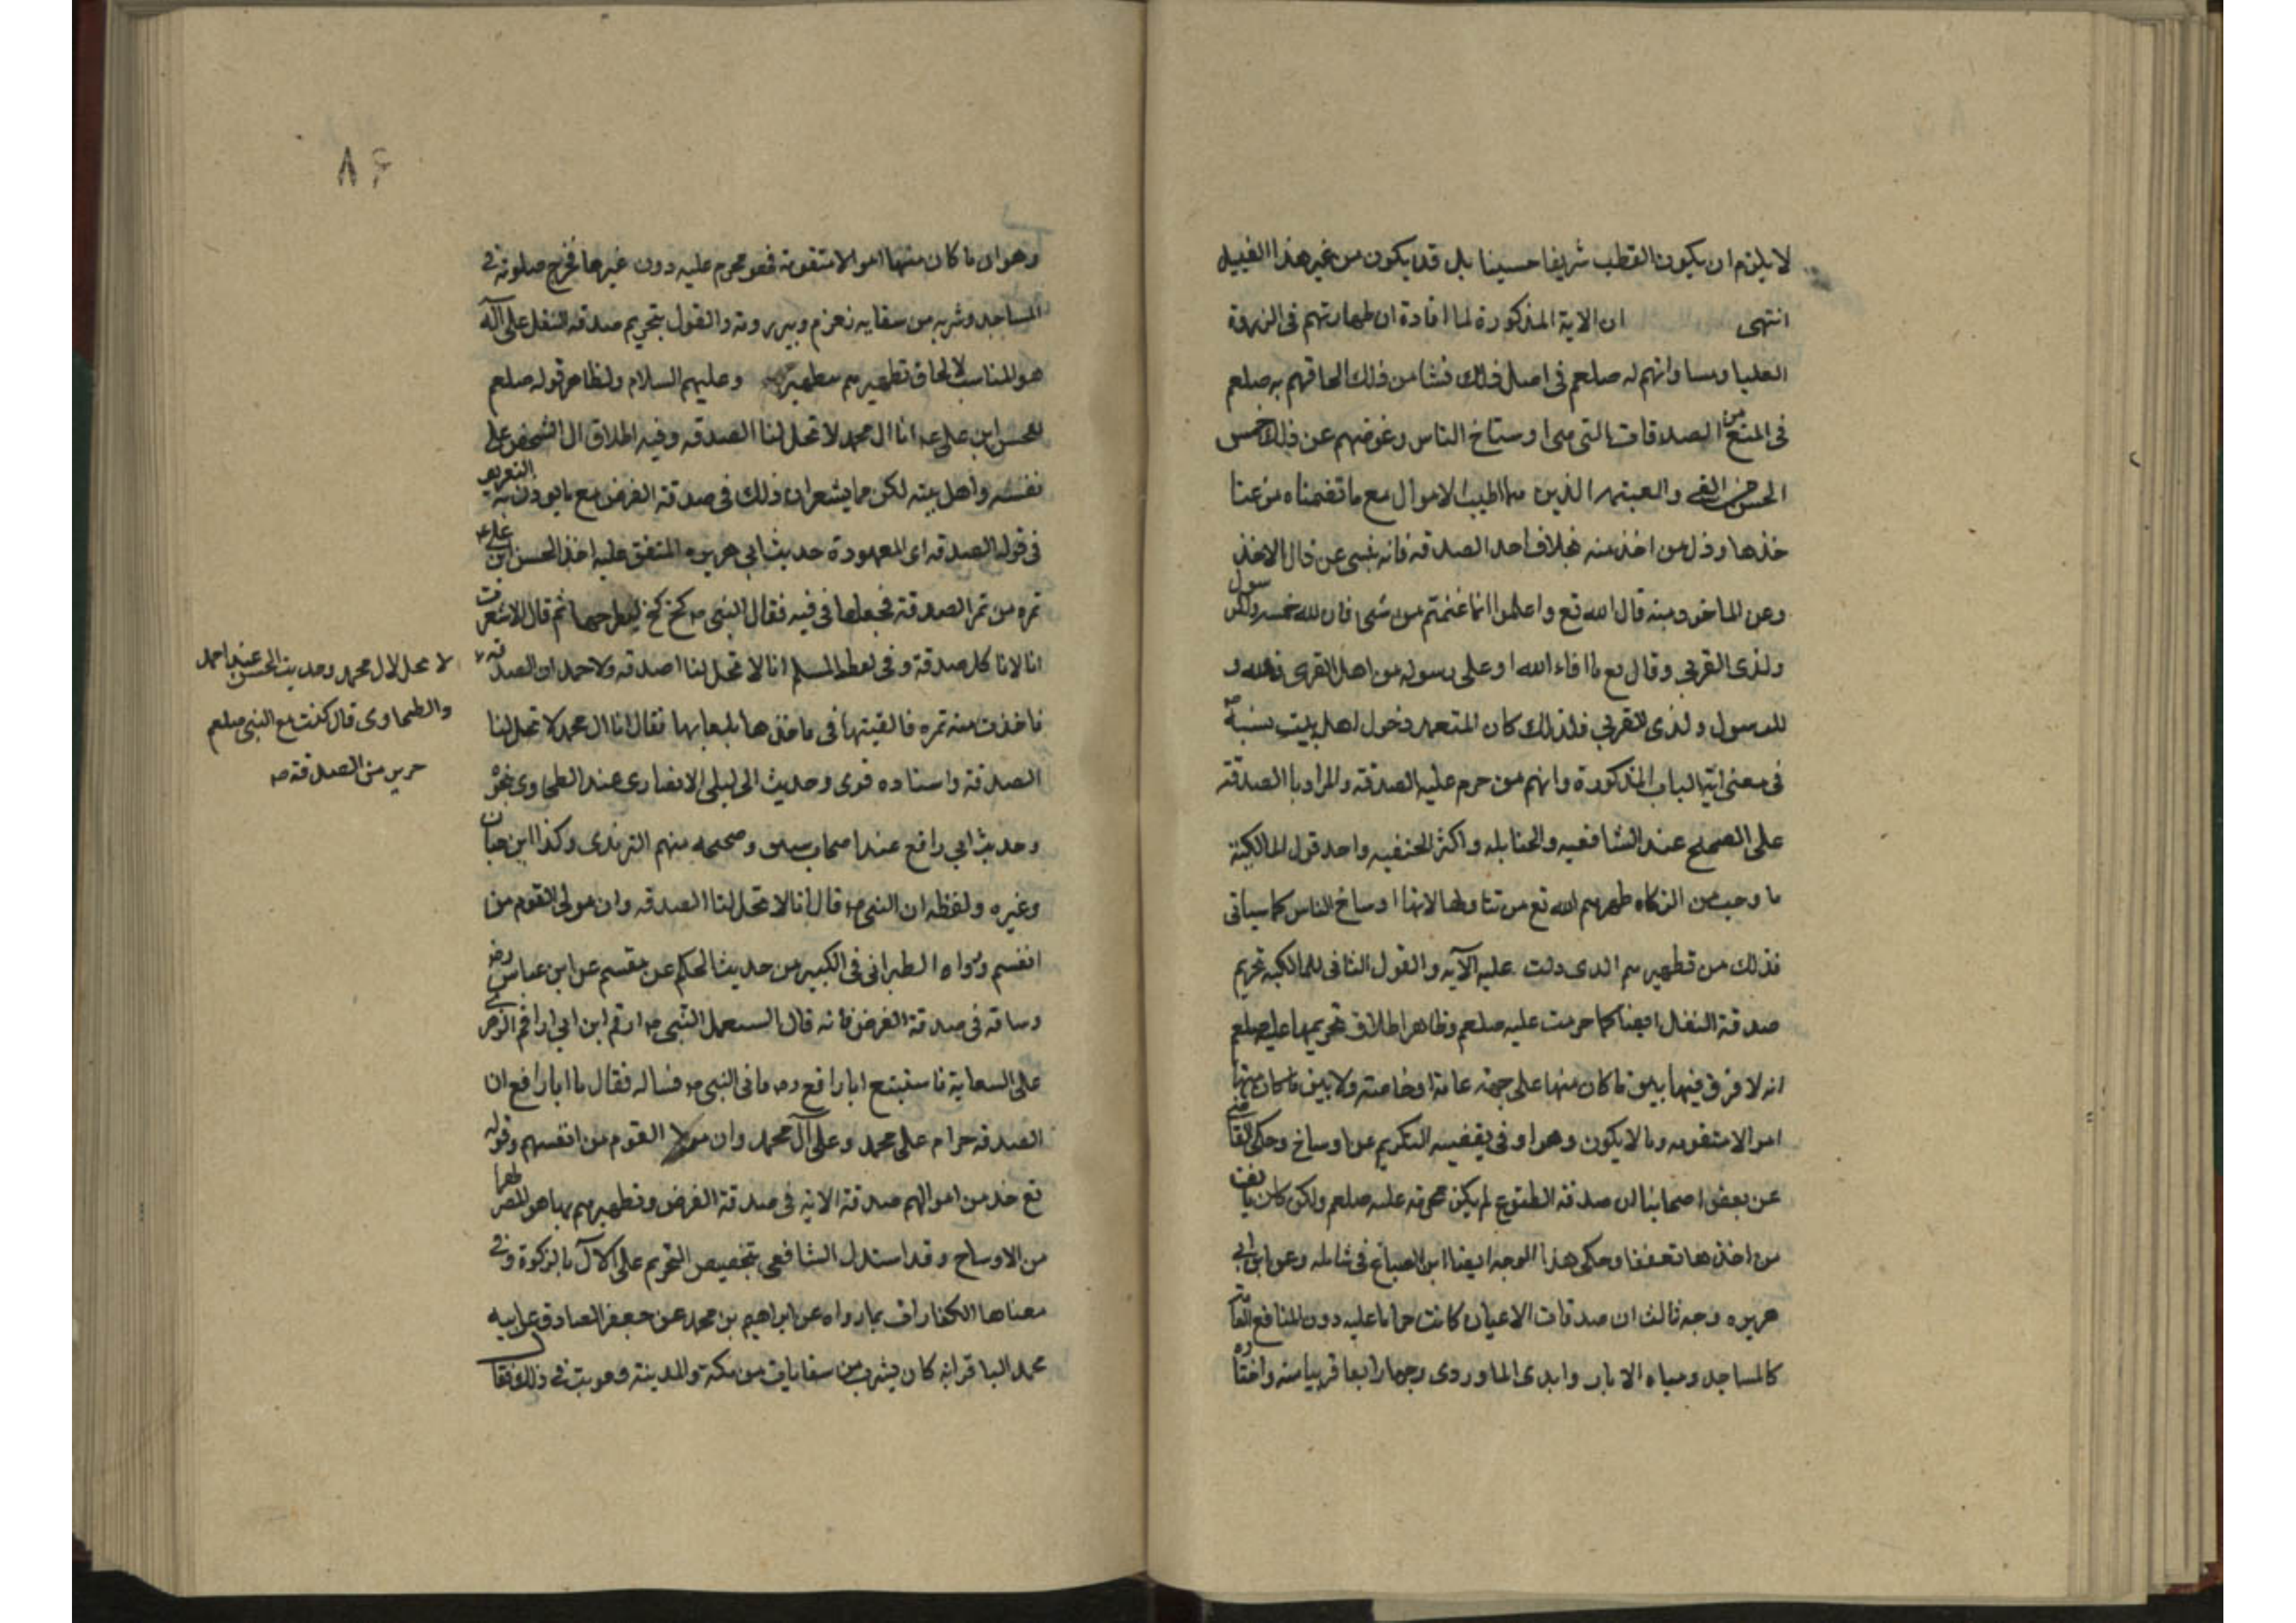 لا يلزم ان يكون القطب شريفا حسينا بل قد يكون من غير هذا القبيل
انتهى ان الاية المذكورة لما افادة ان طهارتهم فى الذروة
العليا ومساواتهم له صلعم فى اصل ذلك فنشا من ذلك الحاقهم به صلعم
فى المنع من الصدقات التى هى اوساخ الناس وعوضهم عن ذلك خمس
الخمس من الفى والغنيمه الذين هما اطيب الاموال مع ما تضمناه من عنا
خذها وذل من اخذ منه بخلاف اخذ الصدقه فانه ينبى عن ذل الاخذ
وعن الماخوذ منه قال الله تع واعلموا انما غنمتم من شى فان لله خمسه وللرسول
ولذى القربى وقال تع ما افاء الله على رسوله من اهل القرى فلله و
للرسول ولذى القربى فلذلك كان المتعمد دخول اهل بيت نسبه
فى معنى اية الباب المذكورة وانهم من حرم عليه الصدقه والمراد با الصدقة
على الصحيح عند الشافعيه والحنابله واكثر الحنفيه واحد قول المالكية
ما وجب من الزكاه طهرهم الله تع من تناولها لانها اوساخ الناس كما سياتى
فذلك من تطهيرهم الذى دلت عليه الآيه والقول الثانى للمالكيه تحريم
صدقة النفل ايضا كما حرمت عليه صلعم وظاهر اطلاق تحريمها عليه صلعم
انه لا فرق فيها بين ما كان منها على جهة عامة او خاصة ولا بين ما كان منها
اموالا متقومه وما لا يكون وهو اوفى بقضيه التكريم عن اوساخ وحكى القاضى
عن بعض اصحابنا ان صدقة التطوع لم يكن محرمه عليه صلعم ولكن كان يانف
من اخذها تعففا وحكى هذا الوجه ايضا ابن الصباغ فى شامله وعن ابن ابى
هريره وجه ثالث ان صدقات الاعيان كانت حراما عليه دون المنافع العامة
كالمساجد ومياه الابار وابدى الماوردى وجها رابعا قريبا منه واختاره
٨۶
وهو ان ما كان منها اموالا متقومة فهو محرم عليه دون غيرها فخرج صلوته فى
المساجد وشربه من سقايه زمزم وبير رومة والقول بتحريم صدقة النفل على آله
هو المناسب لالحاق تطهيرهم بتطهيره وعليهم السلام ولظاهر قوله صلعم
للحسن ابن على ع انا ال محمد لا تحل لنا الصدقه وفيه اطلاق ال الشخص على
نفسه واهل بيته لكن مما يشعر ان ذلك فى صدقة الفرض مع ما يوذن به التعريف
فى قوله الصدقه اى المعهودة حديث ابى هريره المتفق عليه اخذ الحسن ابن على ع
تمره من تمر الصدقة فجعلها فى فيه فقال النبى ص كخ كخ ليطرحها ثم قال الا شعرت
انا لا ناكل صدقة وفى لفظ المسلم انا لا تحل لنا اصدقه ولاحمد ان الصدقه لا
لا تحل لال محمد وحديث الحسن عند احمد
والطحاوى قال كنت مع النبى صلعم
من الصدقة
فاخذت منه تمره فالقيتها فى فاخذها بلعابها فقال انا ال محمد لا تحل لنا
الصدقة واسناده قوى وحديث ابى ليلى الانصارى عند الطحاوى نحوه
وحديث ابى رافع عند اصحاب سنن وصححه منهم الترمذى وكذا ابن حبان
وغيره ولفظه ان النبى ص قال انا لا تحل لنا الصدقه وان مولى القوم من
انفسهم ورواه الطبرانى فى الكبير من حديث الحكم عن مقسم عن ابن عباس رض
وساقه فى صدقة الفرض فانه قال استعمل النبى ص ارقم ابن ابى ارقم الزهرى
على السعاية فاستتبع ابا رافع فاتى النبى ص فساله فقال يا ابا رافع ان
الصدقه حرام على محمد وعلى آل محمد وان مولا القوم من انفسهم وقوله
تع خذ من اموالهم صدقة الاية فى صدقة الفرض وتطهيرهم بها هو المصرها
من الاوساخ وقد استدل الشافعى بتخصيص التحريم على الآل بالزكوة وفى
معناها الكفارات بما رواه عن ابراهيم بن محمد عن جعفر الصادق عن ابيه
محمد الباقر انه كان يشرب من سقايات من مكة والمدينة فعوتب فى ذلك فقال